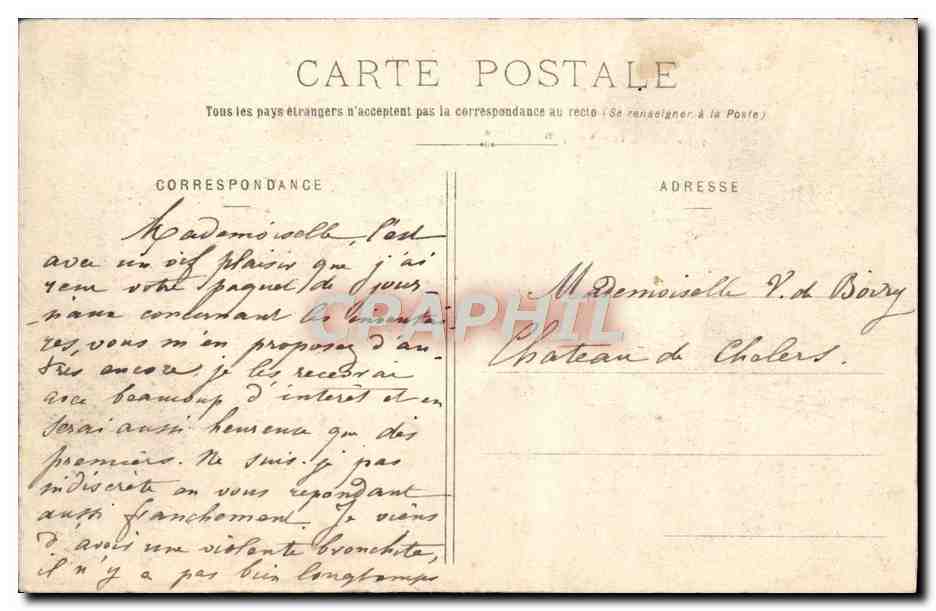 CARTE POSTALE
Tous les pays étrangers n'acceptent pas la correspondance au recto (Se renseigner à la Poste)
CORRESPONDANCE
ADRESSE
Mademoiselle, c'est
avec un vif plaisir que j'ai
reçu votre paquet de jour-
-naux concernant les inventai-
res, vous m'en proposez d'au-
tres encore, je les recevrai
avec beaucoup d'intérêt et en
serai aussi heureuse que des
premiers. Ne suis-je pas
indiscrète en vous répondant
aussi franchement. Je viens
d'avoir une violente bronchite,
il n'y a pas bien longtemps
Mademoiselle V. de Boiry
Chateau de Cholers.
CPAPHIL